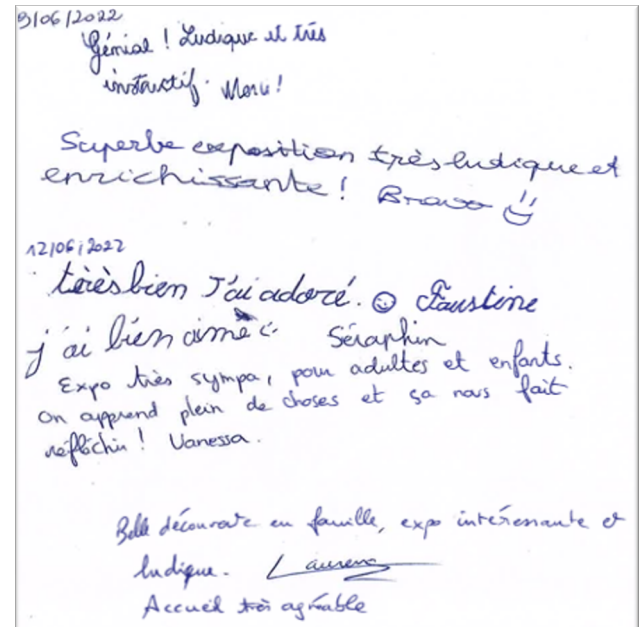 9/06/2022
Génial ! Ludique et très
instructif. Merci !
Superbe exposition très ludique et
enrichissante ! Bravo
12/06/2022
très bien J'ai adoré. ☺ Faustine
j'ai bien aimé Séraphin
Expo très sympa, pour adultes et enfants.
On apprend plein de choses et ça nous fait
réfléchir ! Vanessa.
Belle découverte en famille, expo intéressante et
ludique.
Accueil très agréable